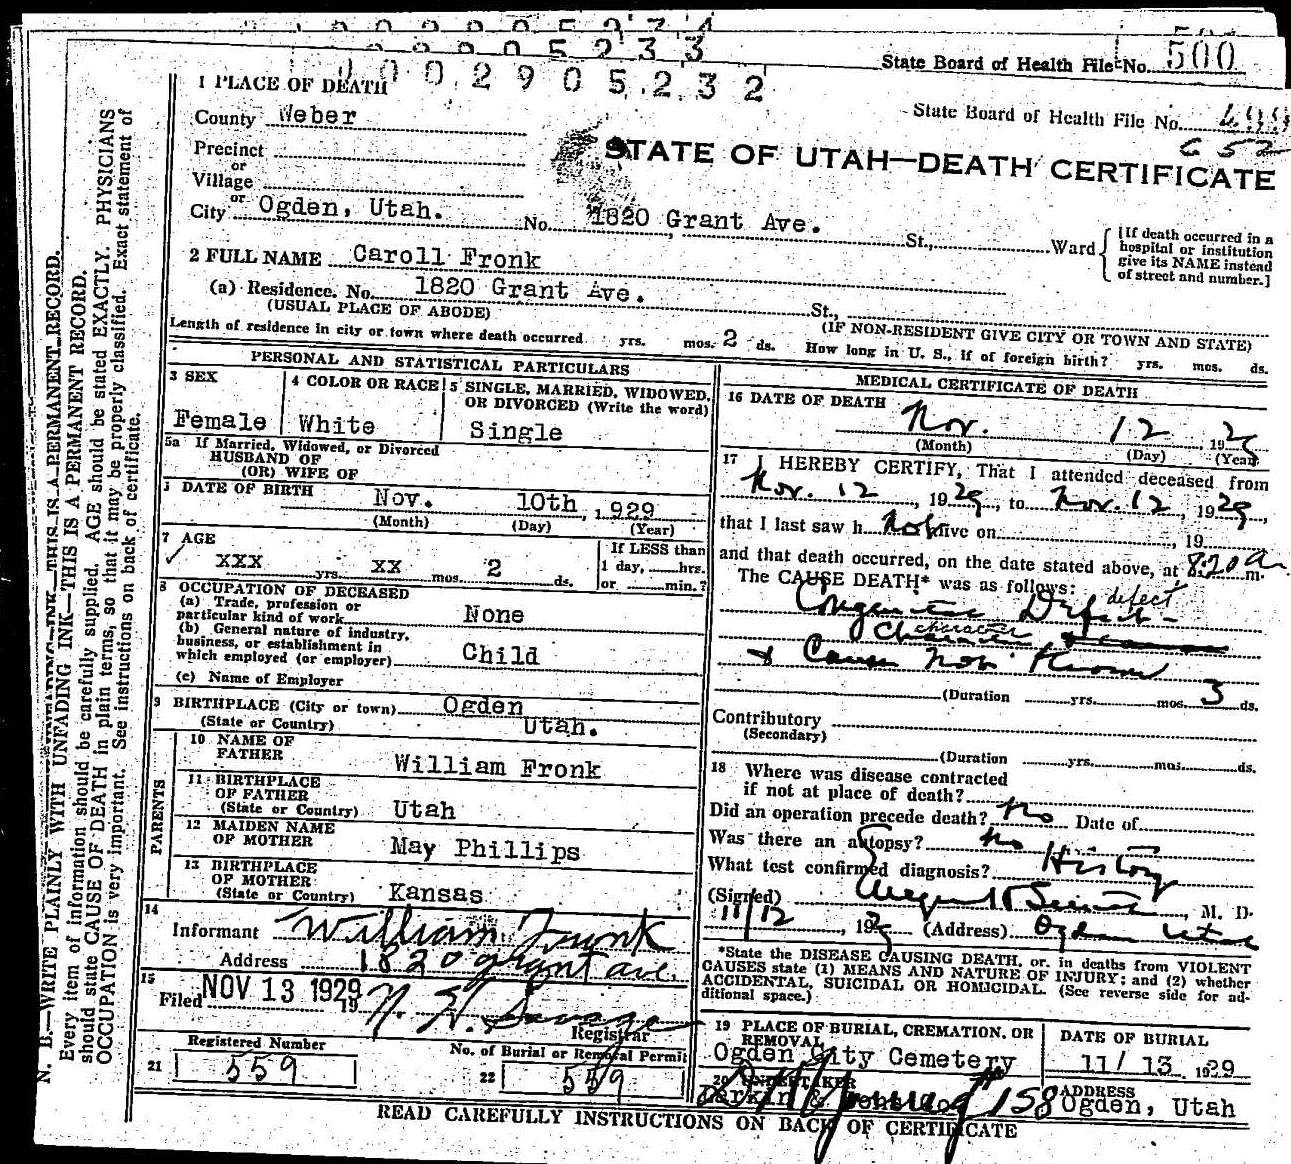 0002905232
State Board of Health File No. 500
1 PLACE OF DEATH
County Weber
State Board of Health File No.
652
Precinct
or
Village
STATE OF UTAH—DEATH CERTIFICATE
or
City Ogden, Utah. No. 1820 Grant Ave. St., Ward
[If death occurred in a hospital or institution give its NAME instead of street and number.]
2 FULL NAME Caroll Fronk
(a) Residence. No. 1820 Grant Ave. St.,
(USUAL PLACE OF ABODE) (IF NON-RESIDENT GIVE CITY OR TOWN AND STATE)
Length of residence in city or town where death occurred yrs. mos. 2 ds. How long in U. S., if of foreign birth? yrs. mos. ds.
PERSONAL AND STATISTICAL PARTICULARS
3 SEX
Female
4 COLOR OR RACE
White
5 SINGLE, MARRIED, WIDOWED,
OR DIVORCED (Write the word)
Single
5a If Married, Widowed, or Divorced
HUSBAND OF
(OR) WIFE OF
DATE OF BIRTH Nov. 10th, 1929
(Month) (Day) (Year)
7 AGE
XXX yrs. XX mos. 2 ds.
If LESS than
1 day, hrs.
or min.?
8 OCCUPATION OF DECEASED
(a) Trade, profession or
particular kind of work None
(b) General nature of industry,
business, or establishment in
which employed (or employer) Child
(c) Name of Employer
9 BIRTHPLACE (City or town) Ogden
(State or Country) Utah.
PARENTS
10 NAME OF
FATHER William Fronk
11 BIRTHPLACE
OF FATHER
(State or Country) Utah
12 MAIDEN NAME
OF MOTHER May Phillips
13 BIRTHPLACE
OF MOTHER
(State or Country) Kansas
14
Informant William Fronk
Address 1820 grant ave.
15
Filed NOV 13 1929 19
N. H. Savage
Registrar
Registered Number
21 559
No. of Burial or Removal Permit
22 559
MEDICAL CERTIFICATE OF DEATH
16 DATE OF DEATH
Nov. 12, 1929
(Month) (Day) (Year)
17 I HEREBY CERTIFY, That I attended deceased from
Nov. 12, 1929, to Nov. 12, 1929,
that I last saw h not alive on, 19
and that death occurred, on the date stated above, at 8:20 a. m.
The CAUSE DEATH* was as follows:
Congenital Defect - defect
character character
& Cause not known
(Duration yrs. mos. 3 ds.
Contributory
(Secondary)
(Duration yrs. mos. ds.
18 Where was disease contracted
if not at place of death?
Did an operation precede death? no Date of
Was there an autopsy? no
What test confirmed diagnosis? History
(Signed), M. D.
11/12, 1929 (Address) Ogden Utah
*State the DISEASE CAUSING DEATH, or, in deaths from VIOLENT
CAUSES state (1) MEANS AND NATURE OF INJURY; and (2) whether
ACCIDENTAL, SUICIDAL OR HOMICIDAL. (See reverse side for ad-
ditional space.)
19 PLACE OF BURIAL, CREMATION, OR
REMOVAL
Ogden City Cemetery
DATE OF BURIAL
11/ 13 1929
20 UNDERTAKER
Larkin &
158
ADDRESS
Ogden, Utah
READ CAREFULLY INSTRUCTIONS ON BACK OF CERTIFICATE
N. B.—WRITE PLAINLY WITH UNFADING INK—THIS IS A PERMANENT RECORD.
Every item of information should be carefully supplied. AGE should be stated EXACTLY. PHYSICIANS
should state CAUSE OF DEATH in plain terms, so that it may be properly classified. Exact statement of
OCCUPATION is very important. See instructions on back of certificate.